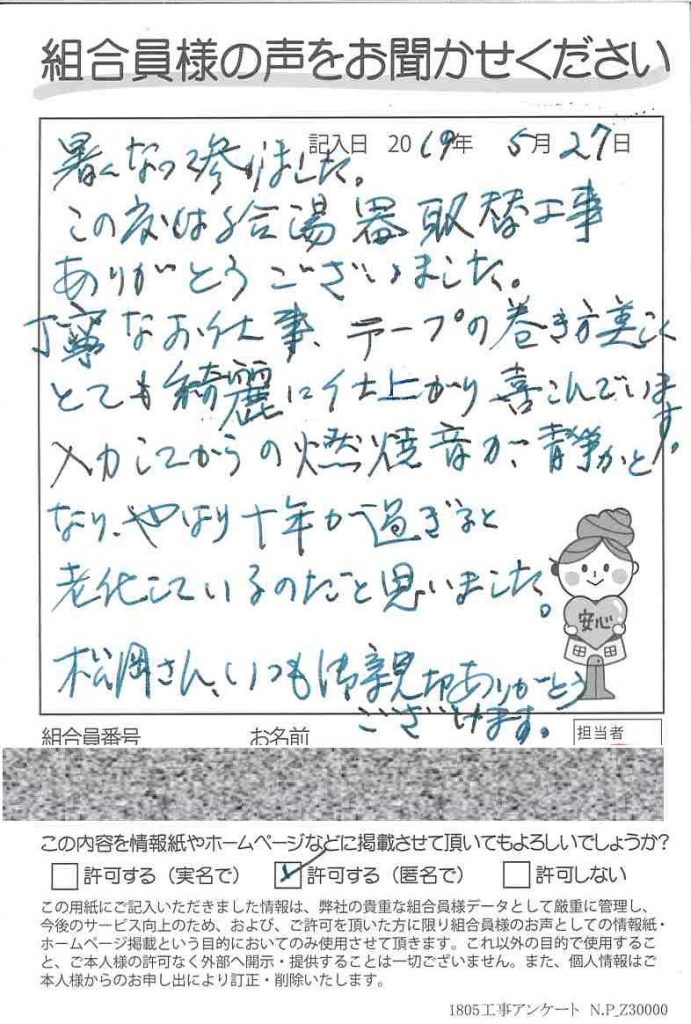 組合員様の声をお聞かせください
記入日 2019年 5月27日
暑くなって参りました。
この度は給湯器取替工事
ありがとうございました。
丁寧なお仕事、テープの巻き方美しく
とても綺麗に仕上がり喜こんでいます。
入力してからの燃焼音が、静かと
なり、やはり十年が過ぎると
老化しているのだと思いました。
安心
松岡さん、いつも御親切ありがとう
ございます。
組合員番号 お名前 担当者
この内容を情報紙やホームページなどに掲載させて頂いてもよろしいでしょうか?
許可する(実名で) 許可する(匿名で) 許可しない
この用紙にご記入いただきました情報は、弊社の貴重な組合員様データとして厳重に管理し、
今後のサービス向上のため、および、ご許可を頂いた方に限り組合員様のお声としての情報紙・
ホームページ掲載という目的においてのみ使用させて頂きます。これ以外の目的で使用するこ
と、ご本人様の許可なく外部へ開示・提供することは一切ございません。また、個人情報はご
本人様からのお申し出により訂正・削除いたします。
1805工事アンケート N.P_Z30000